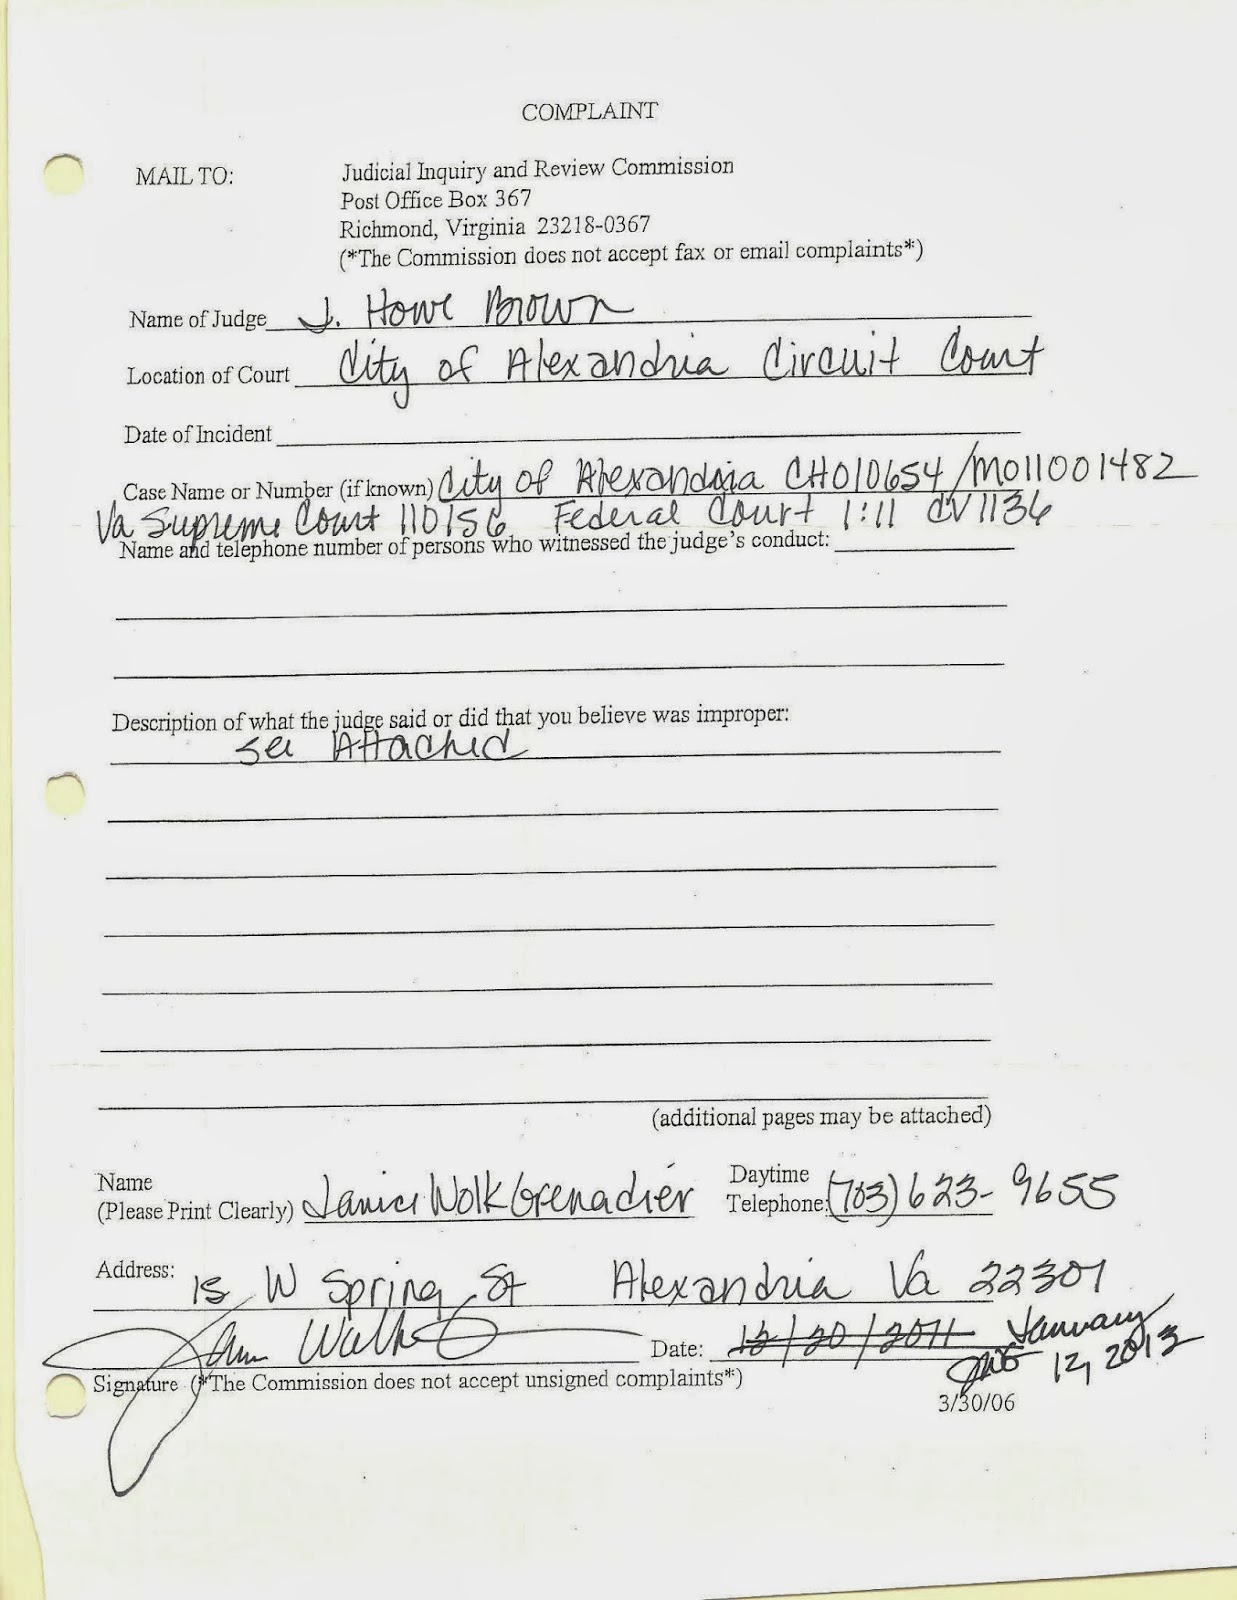 COMPLAINT
MAIL TO: Judicial Inquiry and Review Commission
Post Office Box 367
Richmond, Virginia 23218-0367
(*The Commission does not accept fax or email complaints*)
Name of Judge J. Howe Brown
Location of Court City of Alexandria Circuit Court
Date of Incident
Case Name or Number (if known) City of Alexandria CH010654/M011001482
Va Supreme Court 110156 Federal Court 1:11 CV1136
Name and telephone number of persons who witnessed the judge's conduct:
Description of what the judge said or did that you believe was improper:
See Attached
(additional pages may be attached)
Name
(Please Print Clearly) Janice Wolk Grenadier
Daytime
Telephone: (703) 623-9655
Address: 15 W Spring St Alexandria Va 22301
Date: 12/20/2011 January
12, 2012
Signature (*The Commission does not accept unsigned complaints*)
3/30/06